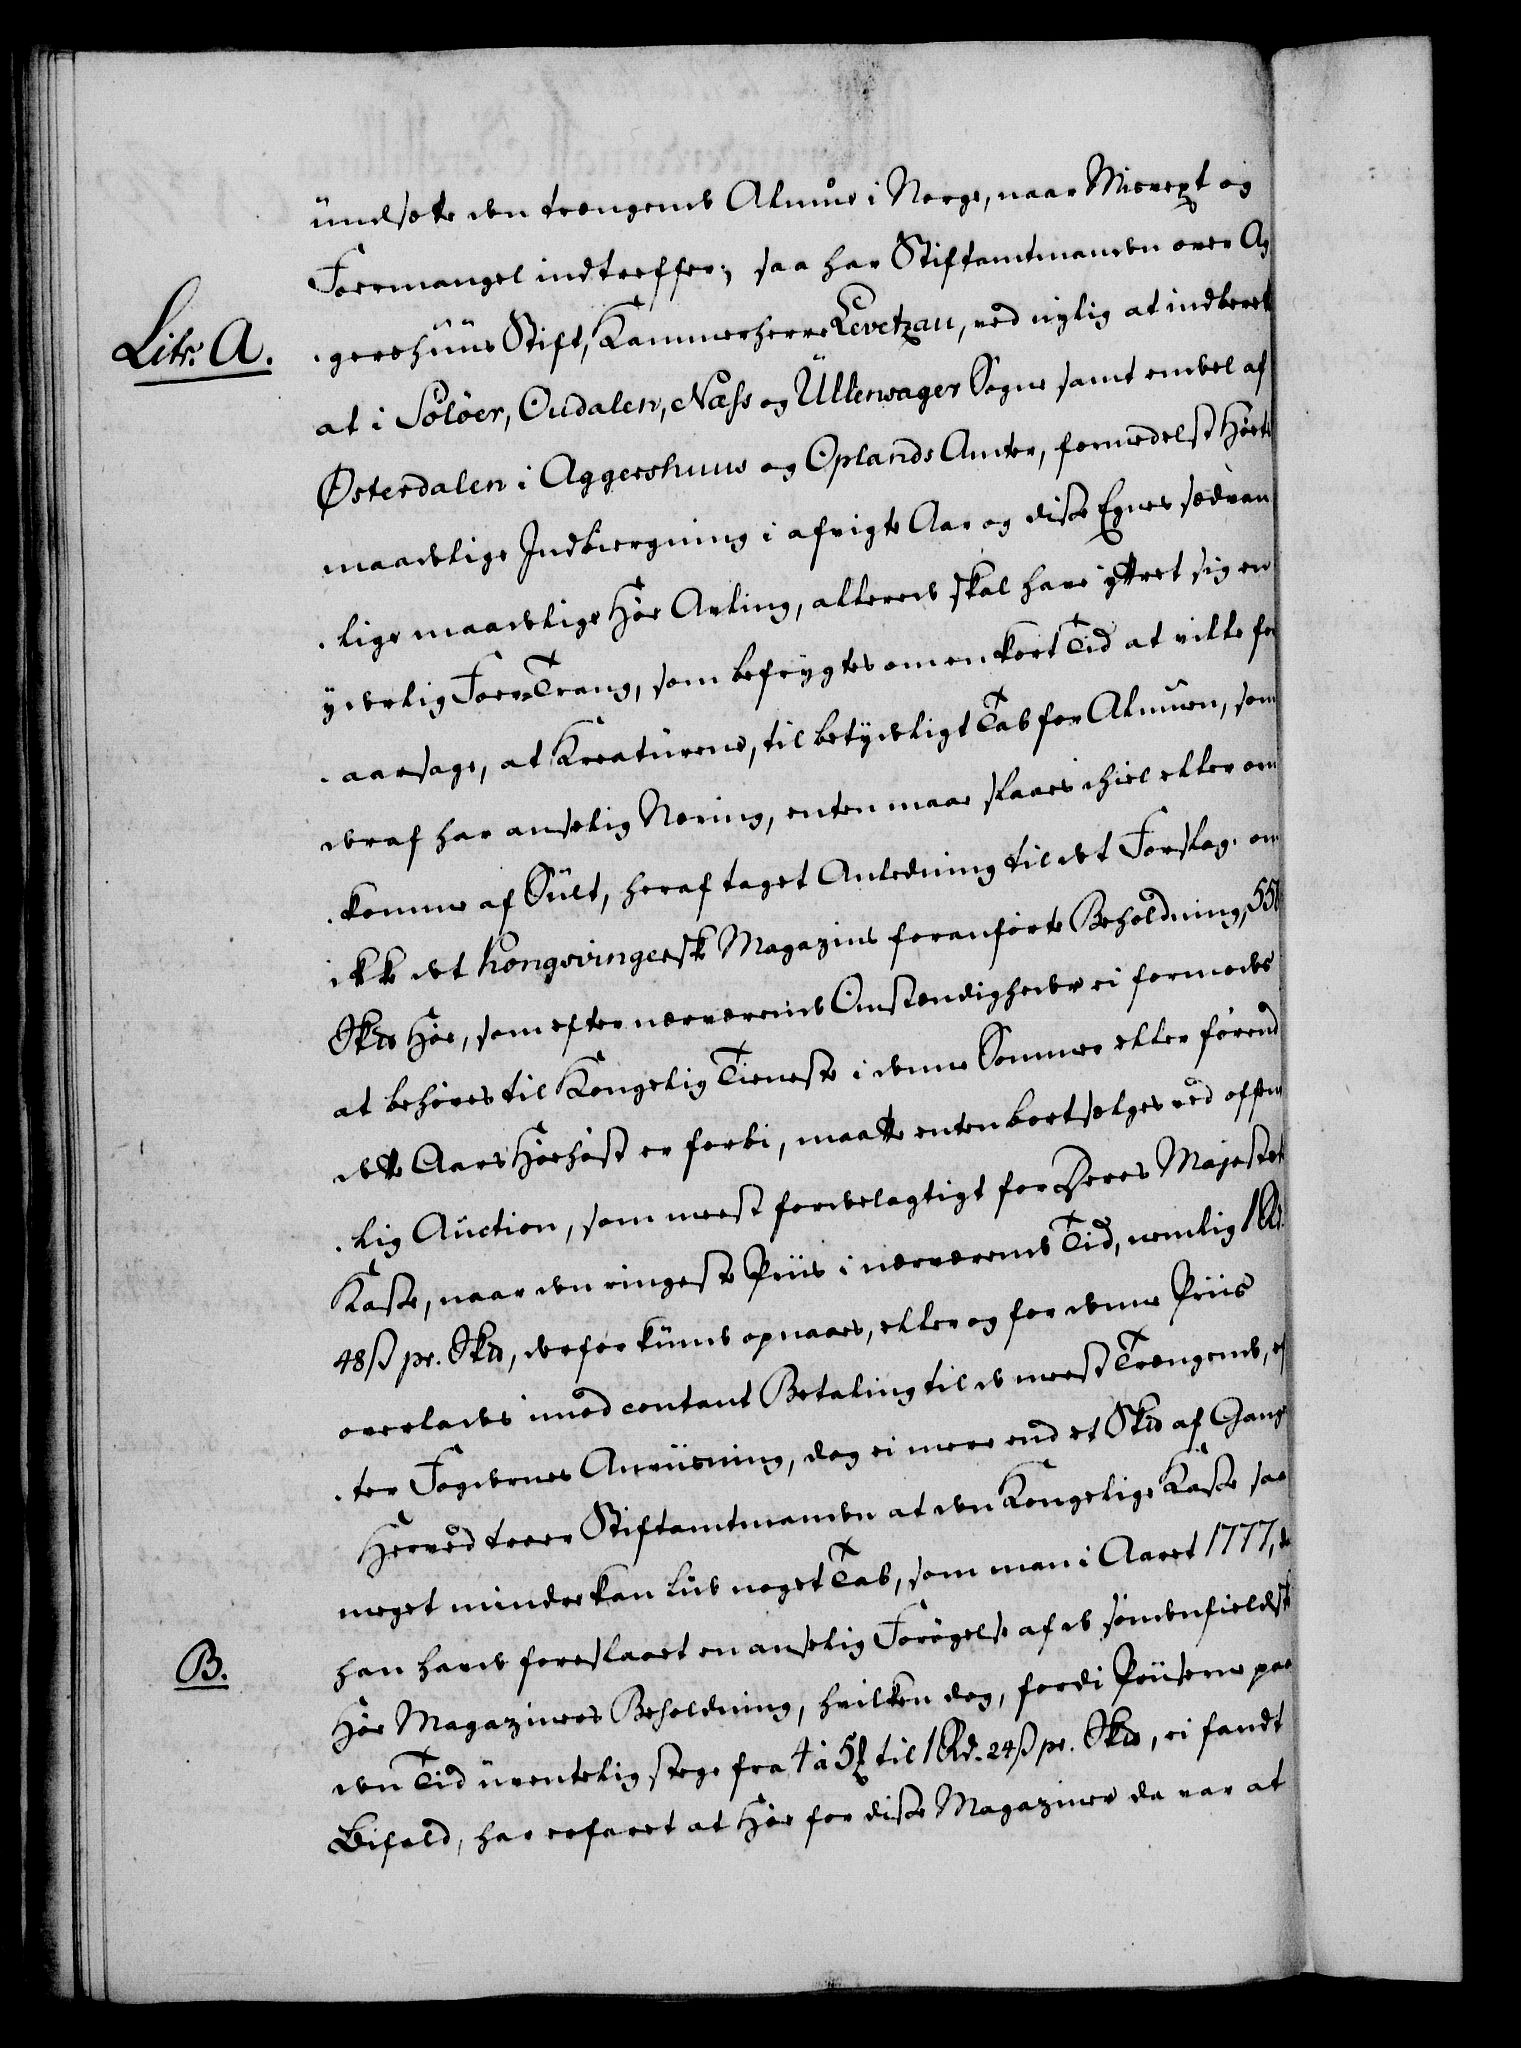 undsætte den trængende Almue i Norge, naar Misvext og
Foermangel indtreffer; saa har Stiftamtmanden over Ag
Litr. A.
-gershuus Stift, Kammerherre Levetzau, ved nylig at indberet
at i Soløer, Oudalen, Næss og Ullensager Sogne samt endeel af
Østerdalen i Aggershuus og Oplands Amter, formedelst Høets
maadelige Indbiergning i afvigte Aar og disse Egnes sædvan
-lige maadelige Høe Avling, allerede skal have yttret sig en
ynkelig Foer-Trang, som befrygtes om en kort Tid at ville for
-aarsage, at Kreaturene, til betydeligt Tab for Almuen, som
deraf har anselig Næring, enten maae slaaes ihiel eller om
-komme af Sult, heraf taget Anledning til det Forslag: om
ikke det Kongsvingerske Magazins foranførte Beholdning, 550
Skd Høe, som efter nærværende Omstændigheder ei formodes
at behøves til Kongelig Tieneste i denne Sommer eller førend
dette Aars Høehøst er forbi, maatte enten bortsælges ved offent
-lig Auction, som meest fordeelagtigt for Deres Majestæts
Kasse, naar den ringeste Priis i nærværende Tid, nemlig 1 Rd.
48 ß pr. Skd, derfor kunde opnaaes, eller og for denne Priis
overlades imod contant Betaling til de meest Trængende, ef
-ter Fogdernes Anviisning, dog ei mere end et Skd af Gang
Herved troer Stiftamtmanden at den Kongelige Kasse saa
meget mindre kan lide noget Tab, som man i Aaret 1777, da
B.
han havde foreslaaet en anselig Forøgelse af de søndenfieldske
Høe Magaziners Beholdning, hvilken dog, fordi Priiserne paa
den Tid uventelig stege fra 4 à 5 till 1 Rd. 24 ß pr. Skd, ei fandt
Bifald, har erfaret at Høe for disse Magaziner da var at